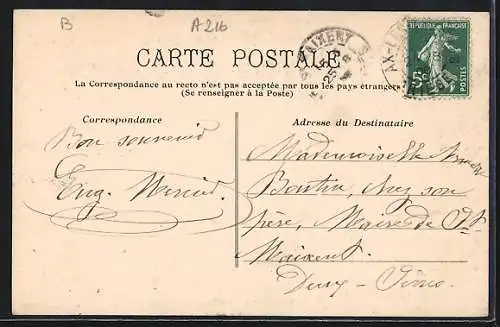 B
A 216
CARTE POSTALE
RÉPUBLIQUE FRANÇAISE
5c
POSTES
La Correspondance au recto n'est pas acceptée par tous les pays étrangers
(Se renseigner à la Poste)
Correspondance
Adresse du Destinataire
Bon souvenir
Eug.
Mademoiselle
chez son
père, Maire de St
Maixent.
Deux-Sèvres.